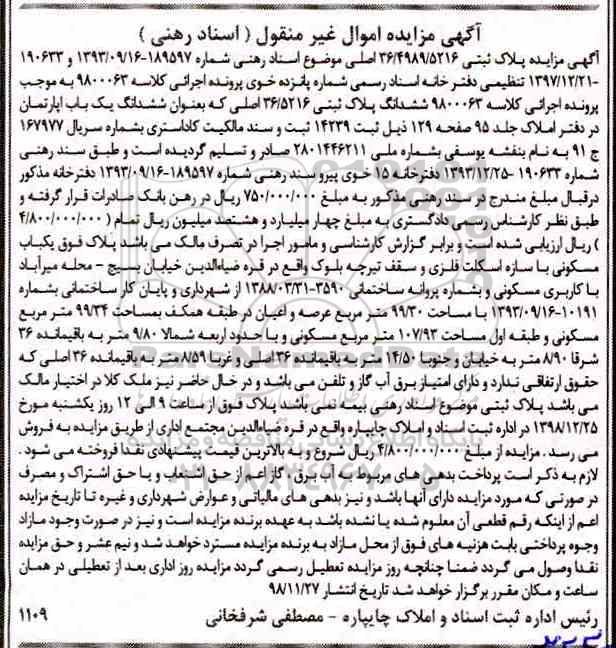 آگهی مزایده اموال غیر منقول ( اسناد رهنی )
آگهی مزایده پلاک ثبتی ۳۶/۴۹۸۹/۵۲۱۶ اصلی موضوع اسناد رهنی شماره ۱۸۹۵۹۷-۱۳۹۳/۰۹/۱۶ و ۱۹۰۶۳۳
-۱۳۹۷/۱۲/۲۱ تنظیمی دفتر خانه اسناد رسمی شماره پانزده خوی پرونده اجرائی کلاسه ۹۸۰۰۰۶۳ به موجب
پرونده اجرائی کلاسه ۹۸۰۰۰۶۳ ششدانگ پلاک ثبتی ۳۶/۵۲۱۶ اصلی که بعنوان ششدانگ یک باب اپارتمان
در دفتر املاک جلد ۹۵ صفحه ۱۲۹ ذیل ثبت ۱۴۲۳۹ ثبت و سند مالکیت کاداستری بشماره سریال ۱۶۷۹۷۷
ج ۹۱ به نام بنفشه یوسفی بشماره ملی ۲۸۰۱۴۴۶۲۱۱ صادر و تسلیم گردیده است و طبق سند رهنی
شماره ۱۹۰۶۳۳ -۱۳۹۳/۱۲/۲۵ دفترخانه ۱۵ خوی پیرو سند رهنی شماره ۱۸۹۵۹۷-۱۳۹۳/۰۹/۱۶ دفترخانه مذکور
درقبال مبلغ مندرج در سند رهنی مذکور به مبلغ ۷۵۰/۰۰۰/۰۰۰ ریال در رهن بانک صادرات قرار گرفته و
طبق نظر کارشناس رسمی دادگستری به مبلغ چهار میلیارد و هشتصد میلیون ریال تمام ( ۴/۸۰۰/۰۰۰/۰۰۰
) ریال ارزیابی شده است و برابر گزارش کارشناسی و مامور اجرا در تصرف مالک می باشد پلاک فوق یکباب
مسکونی با سازه اسکلت فلزی و سقف تیرچه بلوک واقع در قره ضیاءالدین خیابان بسیج - محله میرآباد
با کاربری مسکونی و بشماره پروانه ساختمانی ۳۵۹۰-۱۳۸۸/۰۳/۳۱ از شهرداری و پایان کار ساختمانی بشماره
۱۰۱۹۱-۱۳۹۳/۰۹/۱۶ با مساحت ۹۹/۳۰ متر مربع عرصه و اعیان در طبقه همکف بمساحت ۹۹/۳۴ متر مربع
مسکونی و طبقه اول مساحت ۱۰۷/۹۳ متر مربع مسکونی و با حدود اربعه شمالا ۹/۸۰ متر به باقیمانده ۳۶
شرقا ۸/۹۰ متر به خیابان و جنوبا ۱۴/۵۰ متر به باقیمانده ۳۶ اصلی و غربا ۸/۵۹ متر به باقیمانده ۳۶ اصلی که
حقوق ارتفاقی ندارد و دارای امتیاز برق آب گاز و تلفن می باشد و در حال حاضر نیز ملک کلا در اختیار مالک
می باشد پلاک ثبتی موضوع اسناد رهنی بیمه نمی باشد پلاک فوق از ساعت ۹ الی ۱۲ روز یکشنبه مورخ
۱۳۹۸/۱۲/۲۵ در اداره ثبت اسناد و املاک چایپاره واقع در قره ضیاءالدین مجتمع اداری از طریق مزایده به فروش
می رسد . مزایده از مبلغ ۴/۸۰۰/۰۰۰/۰۰۰ ریال شروع و به بالاترین قیمت پیشنهادی نقدا فروخته می شود .
لازم به ذکر است پرداخت بدهی های مربوط به آب برق ، گاز اعم از حق انشعاب و یا حق اشتراک و مصرف
در صورتی که مورد مزایده دارای آنها باشد و نیز بدهی های مالیاتی و عوارض شهرداری و غیره تا تاریخ مزایده
اعم از اینکه رقم قطعی آن معلوم شده یا نشده باشد به عهده برنده مزایده است و نیز در صورت وجود مازاد
وجوه پرداختی بابت هزینه های فوق از محل مازاد به برنده مزایده مسترد خواهد شد و نیم عشر و حق مزایده
نقدا وصول می گردد ضمنا چنانچه روز مزایده تعطیل رسمی گردد مزایده روز اداری بعد از تعطیلی در همان
ساعت و مکان مقرر برگزار خواهد شد تاریخ انتشار ۹۸/۱۱/۲۷
رئیس اداره ثبت اسناد و املاک چایپاره - مصطفی شرفخانی ۱۱۰۹